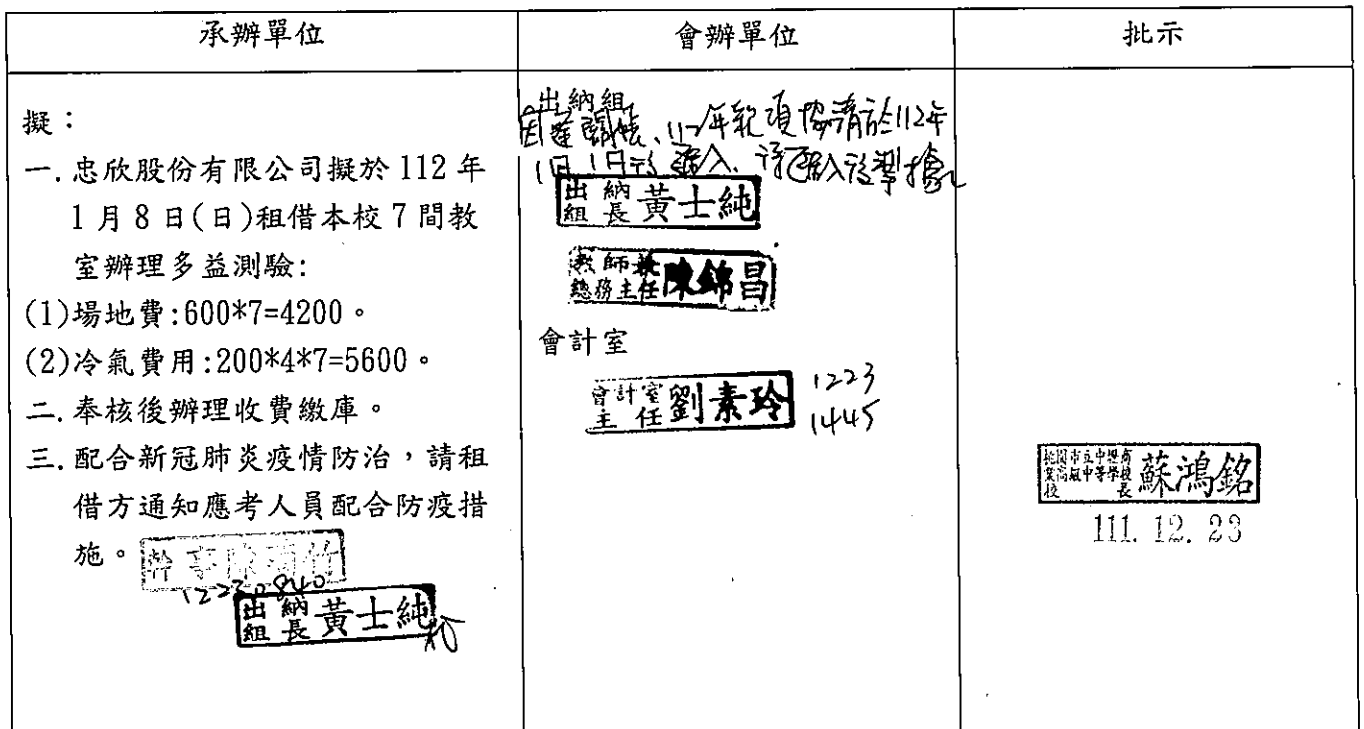 承辦單位
會辦單位
批示
擬：
一.忠欣股份有限公司擬於112年
1月8日(日)租借本校7間教
室辦理多益測驗:
(1)場地費:600*7=4200。
(2)冷氣費用:200*4*7=5600。
二.奉核後辦理收費繳庫。
三.配合新冠肺炎疫情防治，請租
借方通知應考人員配合防疫措
施。
幹事陳
12230840
出納組長 黃士純
出納組
年款項 請於112年
1月1日後匯入
出納組長 黃士純
教師兼總務主任 陳錦昌
會計室
會計室主任 劉素玲
1223
1445
桃園市立中壢商業高級中等學校校長 蘇鴻銘
111. 12. 23